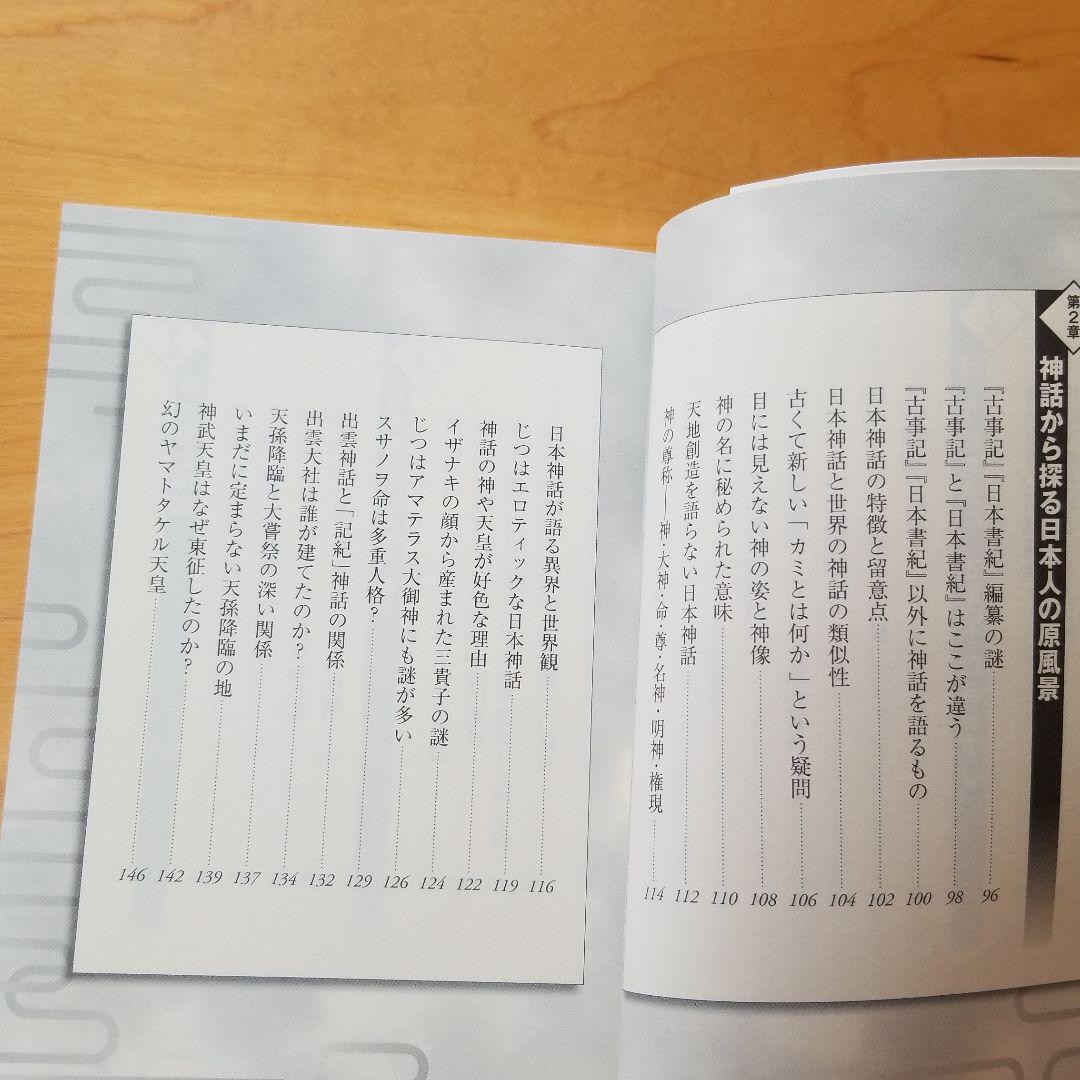 第2章
神話から探る日本人の原風景
『古事記』『日本書紀』編纂の謎 96
『古事記』と『日本書紀』はここが違う 98
『古事記』『日本書紀』以外に神話を語るもの 100
日本神話の特徴と留意点 102
日本神話と世界の神話の類似性 104
古くて新しい「カミとは何か」という疑問 106
目には見えない神の姿と神像 108
神の名に秘められた意味 110
天地創造を語らない日本神話 112
神の尊称──神・大神・命・尊・名神・明神・権現 114
日本神話が語る異界と世界観 116
じつはエロティックな日本神話 119
神話の神や天皇が好色な理由 122
イザナキの顔から産まれた三貴子の謎 124
じつはアマテラス大御神にも謎が多い 126
スサノヲ命は多重人格? 129
出雲神話と「記紀」神話の関係 132
出雲大社は誰が建てたのか? 134
天孫降臨と大嘗祭の深い関係 137
いまだに定まらない天孫降臨の地 139
神武天皇はなぜ東征したのか? 142
幻のヤマトタケル天皇 146